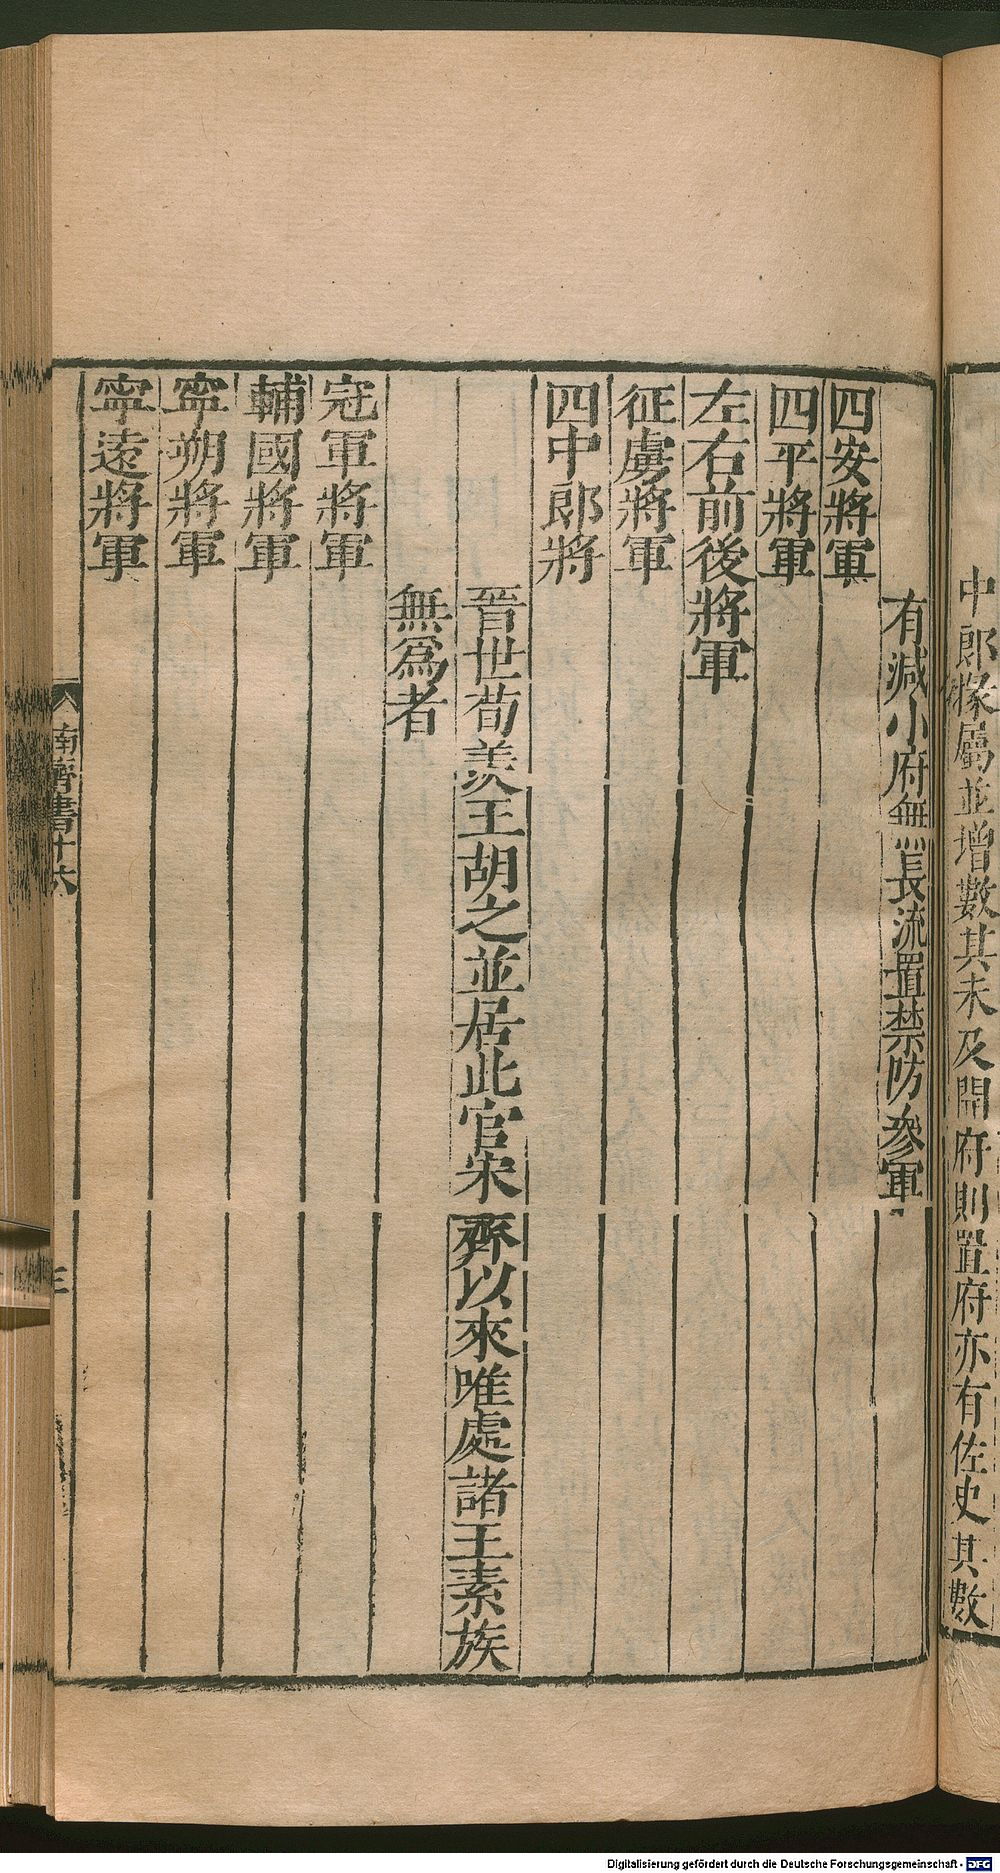 中郎掾屬並增數其未及開府則置府亦有佐史其數
有減小府無長流置禁防參軍
四安將軍
四平將軍
左右前後將軍
征虜將軍
四中郎將
晉世荀羨王胡之並居此官宋齊以來唯處諸王素族
無爲者
冠軍將軍
輔國將軍
寧朔將軍
寧遠將軍
南齊書十六
三
Digitalisierung gefördert durch die Deutsche Forschungsgemeinschaft - DFG